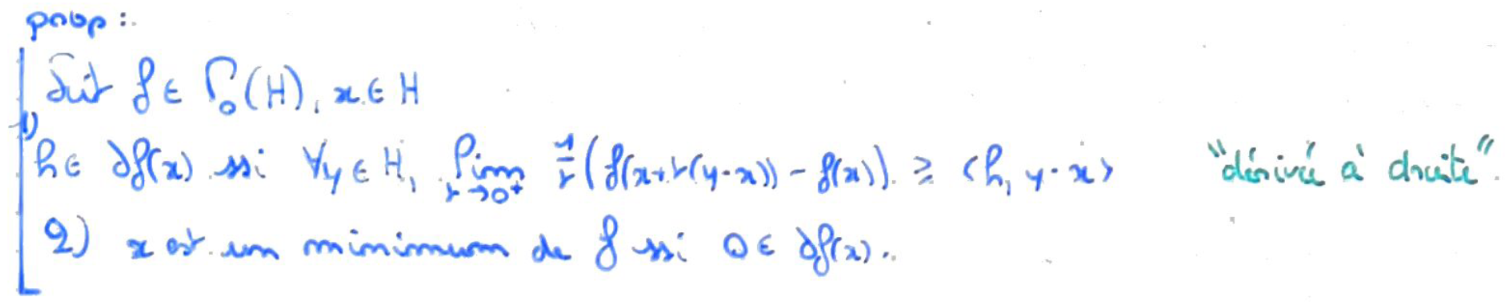 prop :
Soit f ∈ Γ₀(H), x ∈ H
1) h ∈ ∂f(x) ssi ∀y ∈ H, lim_{r→0⁺} 1/r (f(x+r(y-x)) - f(x)) ≥ <h, y-x> "dérivée à droite"
2) x est un minimum de f ssi 0 ∈ ∂f(x).